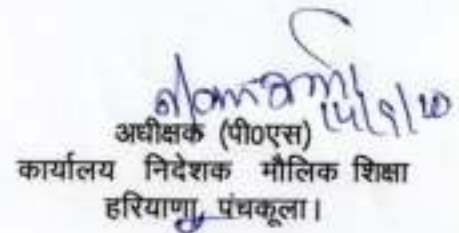 14/9/20
अधीक्षक (पी०एस)
कार्यालय निदेशक मौलिक शिक्षा
हरियाणा, पंचकूला।